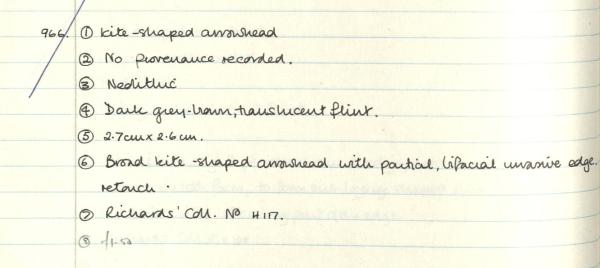 966. ① Kite-shaped arrowhead
② No provenance recorded.
③ Neolithic
④ Dark grey-brown, translucent flint.
⑤ 2.7cm x 2.6cm.
⑥ Broad kite-shaped arrowhead with partial, bifacial invasive edge.
retouch.
⑦ Richards' Coll. No H17.
⑧ £1.50